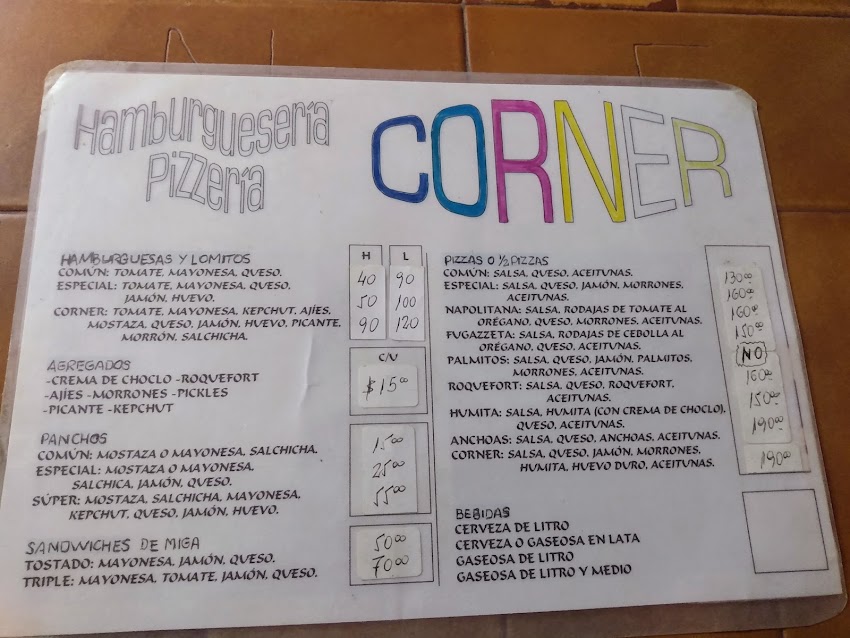 Hamburguesería
Pizzería
CORNER
HAMBURGUESAS Y LOMITOS
H L
COMÚN: TOMATE, MAYONESA, QUESO.
40 90
ESPECIAL: TOMATE, MAYONESA, QUESO,
JAMÓN, HUEVO.
50 100
CORNER: TOMATE, MAYONESA, KEPCHUT, AJÍES,
MOSTAZA, QUESO, JAMÓN, HUEVO, PICANTE,
MORRÓN, SALCHICHA.
90 120
AGREGADOS
C/U
-CREMA DE CHOCLO -ROQUEFORT
-AJÍES -MORRONES -PICKLES
-PICANTE -KEPCHUT
$15.00
PANCHOS
COMÚN: MOSTAZA O MAYONESA, SALCHICHA.
15.00
ESPECIAL: MOSTAZA O MAYONESA,
SALCHICA, JAMÓN, QUESO.
25.00
SÚPER: MOSTAZA, SALCHICHA, MAYONESA,
KEPCHUT, QUESO, JAMÓN, HUEVO.
55.00
SANDWICHES DE MIGA
TOSTADO: MAYONESA, JAMÓN, QUESO.
50.00
TRIPLE: MAYONESA, TOMATE, JAMÓN, QUESO.
70.00
PIZZAS O ½ PIZZAS
COMÚN: SALSA, QUESO, ACEITUNAS.
130.00
ESPECIAL: SALSA, QUESO, JAMÓN, MORRONES,
ACEITUNAS.
160.00
NAPOLITANA: SALSA, RODAJAS DE TOMATE AL
ORÉGANO, QUESO, MORRONES, ACEITUNAS.
160.00
FUGAZZETA: SALSA, RODAJAS DE CEBOLLA AL
ORÉGANO, QUESO, ACEITUNAS.
150.00
PALMITOS: SALSA, QUESO, JAMÓN, PALMITOS,
MORRONES, ACEITUNAS.
NO
ROQUEFORT: SALSA, QUESO, ROQUEFORT,
ACEITUNAS.
160.00
HUMITA: SALSA, HUMITA (CON CREMA DE CHOCLO),
QUESO, ACEITUNAS.
150.00
ANCHOAS: SALSA, QUESO, ANCHOAS, ACEITUNAS.
190.00
CORNER: SALSA, QUESO, JAMÓN, MORRONES,
HUMITA, HUEVO DURO, ACEITUNAS.
190.00
BEBIDAS
CERVEZA DE LITRO
CERVEZA O GASEOSA EN LATA
GASEOSA DE LITRO
GASEOSA DE LITRO Y MEDIO